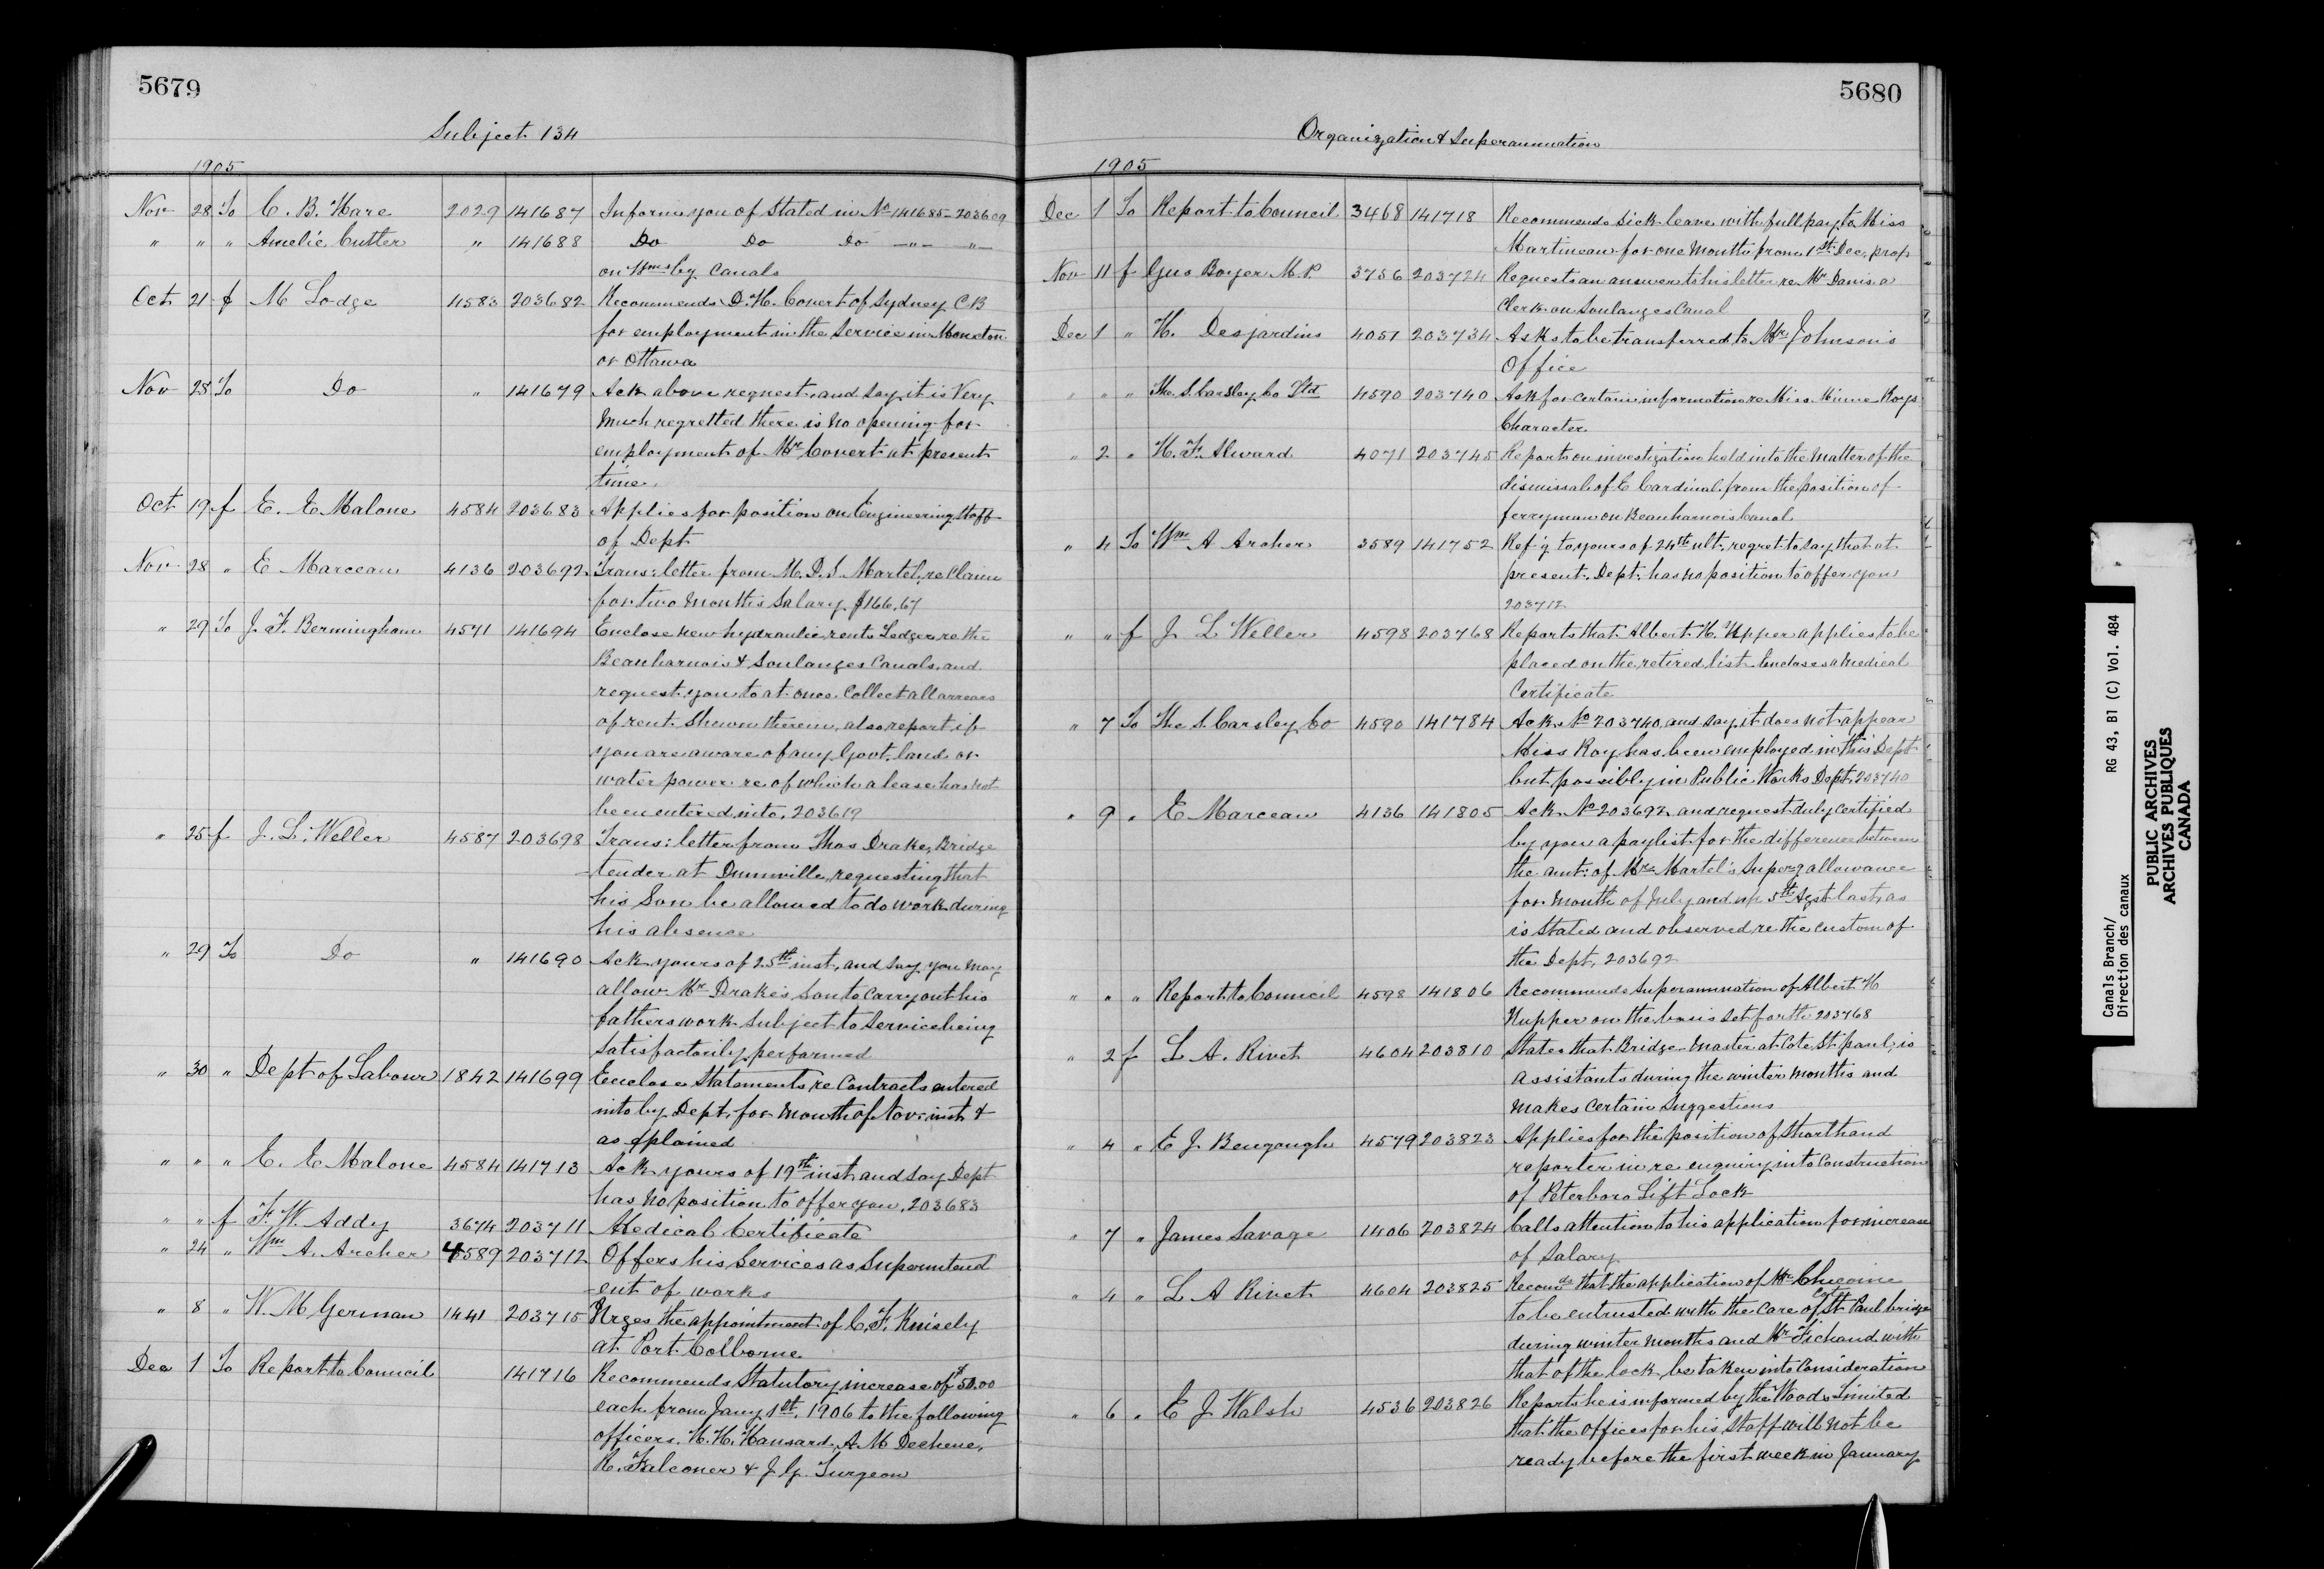 5679
Subject 134
1905
Nov 28 To C. B. Hare 2029 141687 Inform you of Stated in No 141685-203609
" " " Amelie Cutter " 141688 Do Do Do -"- -"-
on Wmsbg Canals
Oct 21 f M Lodge 4583 203682 Recommends D. H. Covert of Sydney C B
for employment in the Service in Moncton
or Ottawa
Nov 28 To Do " 141679 Ack above request, and say it is Very
much regretted there is no opening for
employment of Mr Covert at present
time.
Oct 19 f E. E Malone 4584 203683 Applies for position on Engineering Staff
of Dept
Nov 28 " E Marceau 4136 203692 Trans: letter from M. D. S. Martel, re Claim
for two months Salary $166.67
" 29 To J. F. Bermingham 4571 141694 Enclose new hydraulic rents Ledger re the
Beauharnois & Soulanges Canals, and
request you to at once Collect all arrears
of rent Shewn therein, also report if
you are aware of any Govt. land or
water power re of which a lease has not
been entered into, 203619
" 25 f J. L. Weller 4587 203698 Trans: letter from Thos Drake, Bridge
tender at Dunnville, requesting that
his Son be allowed to do work during
his absence
" 29 To Do " 141690 Ack yours of 25th inst, and say you may
allow Mr Drake's Son to Carry out his
fathers work Subject to Service being
Satisfactorily performed
" 30 " Dept of Labour 1842 141699 Enclose Statements re Contracts entered
into by Dept. for month of Nov. inst &
as explained
" " " E. E Malone 4584 141713 Ack yours of 19th inst and say Dept
has no position to offer you, 203683
" " f F. W. Addy 3674 203711 Medical Certificate
" 24 " Wm A. Archer 4589 203712 Offers his Services as Superintend
ent of works
" 8 " W. M German 1441 203715 Urges the appointment of C. F. Knisely
at Port Colborne
Dec 1 To Report to Council 141716 Recommends Statutory increase of $50.00
each from Jany 1st, 1906 to the following
officers. H. H. Hansard, A. M Dechene,
R. Falconer & J. G. Turgeon
5680
Organization & Superannuation
1905
Dec 1 To Report to Council 3468 141718 Recommends Sick leave with full pay to Miss
Martineau for one month from 1st Dec, prox
Nov 11 f Gus Boyer M.P. 3756 203724 Requests an answer to his letter re Mr Danis a
Clerk on Soulanges Canal
Dec 1 " H. Desjardins 4051 203734 Asks to be transferred to Mr Johnson's
Office
" " " The S. Carsley Co Ltd 4590 203740 Ask for certain information re Miss Minnie Roy's
Character
" 2 " H. F. Alward 4071 203745 Reports on investigation held into the matter of the
dismissal of E Cardinal from the position of
ferryman on Beauharnois Canal
" 4 To Wm A Archer 3589 141752 Ref'g to yours of 24th ult, regret to say that at
present, Dept. has no position to offer you
203712
" " f J. L Weller 4598 203768 Reports that Albert H. Upper applies to be
placed on the retired list. Encloses a Medical
Certificate
" 7 To The S. Carsley Co 4590 141784 Ack No 203740, and say, it does not appear
Miss Roy has been employed in this Dept
but possibly in Public Works Dept, 203740
" 9 " E Marceau 4136 141805 Ack No 203692 and request duly Certified
by you a paylist for the difference between
the amt: of Mr Martel's Superg allowance
for month of July and up 5th Agst last, as
is Stated and observed re the custom of
the Dept, 203692
" " " Report to Council 4598 141806 Recommends Superannuation of Albert H
Hupper on the basis set forth 203768
" 2 f L. A. Rivet 4604 203810 States that Bridge Master at Cote St paul, is
assistants during the winter months and
makes Certain Suggestions
" 4 " E J. Bengough 4579 203823 Applies for the position of Shorthand
reporter in re enquiry into Construction
of Peterboro Lift Lock
" 7 " James Savage 1406 203824 Calls attention to his application for increase
of Salary
" 4 " L A Rivet 4604 203825 Recomds that the application of Mr
to be entrusted with the Care of Cote St Paul bridge
during winter months and Mr with
that of the lock, be taken into Consideration
" 6 " E J Walsh 4536 203826 Reports he is informed by the Woods Limited
that the offices for his Staff will not be
ready before the first week in January
Canals Branch/
Direction des canaux
RG 43, B1 (C) Vol. 484
PUBLIC ARCHIVES
ARCHIVES PUBLIQUES
CANADA